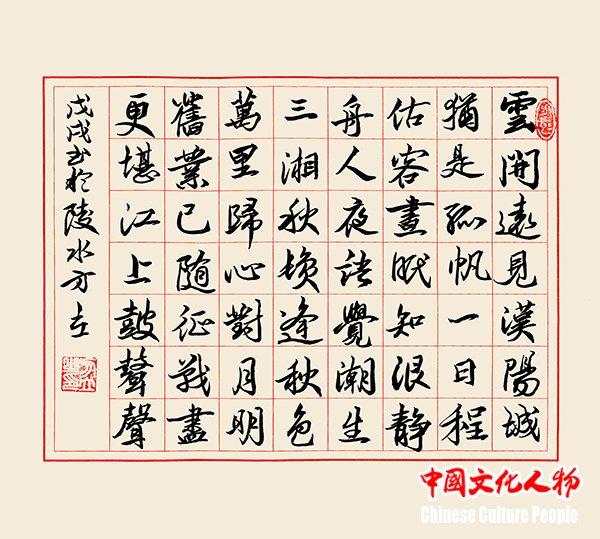 雲開遠見漢陽城
猶是孤帆一日程
估客晝眠知浪靜
舟人夜語覺潮生
三湘秋鬢逢秋色
萬里歸心對月明
舊業已隨征戰盡
更堪江上鼓鼙聲
戊戌书於陵水方立
中國文化人物
Chinese Culture People